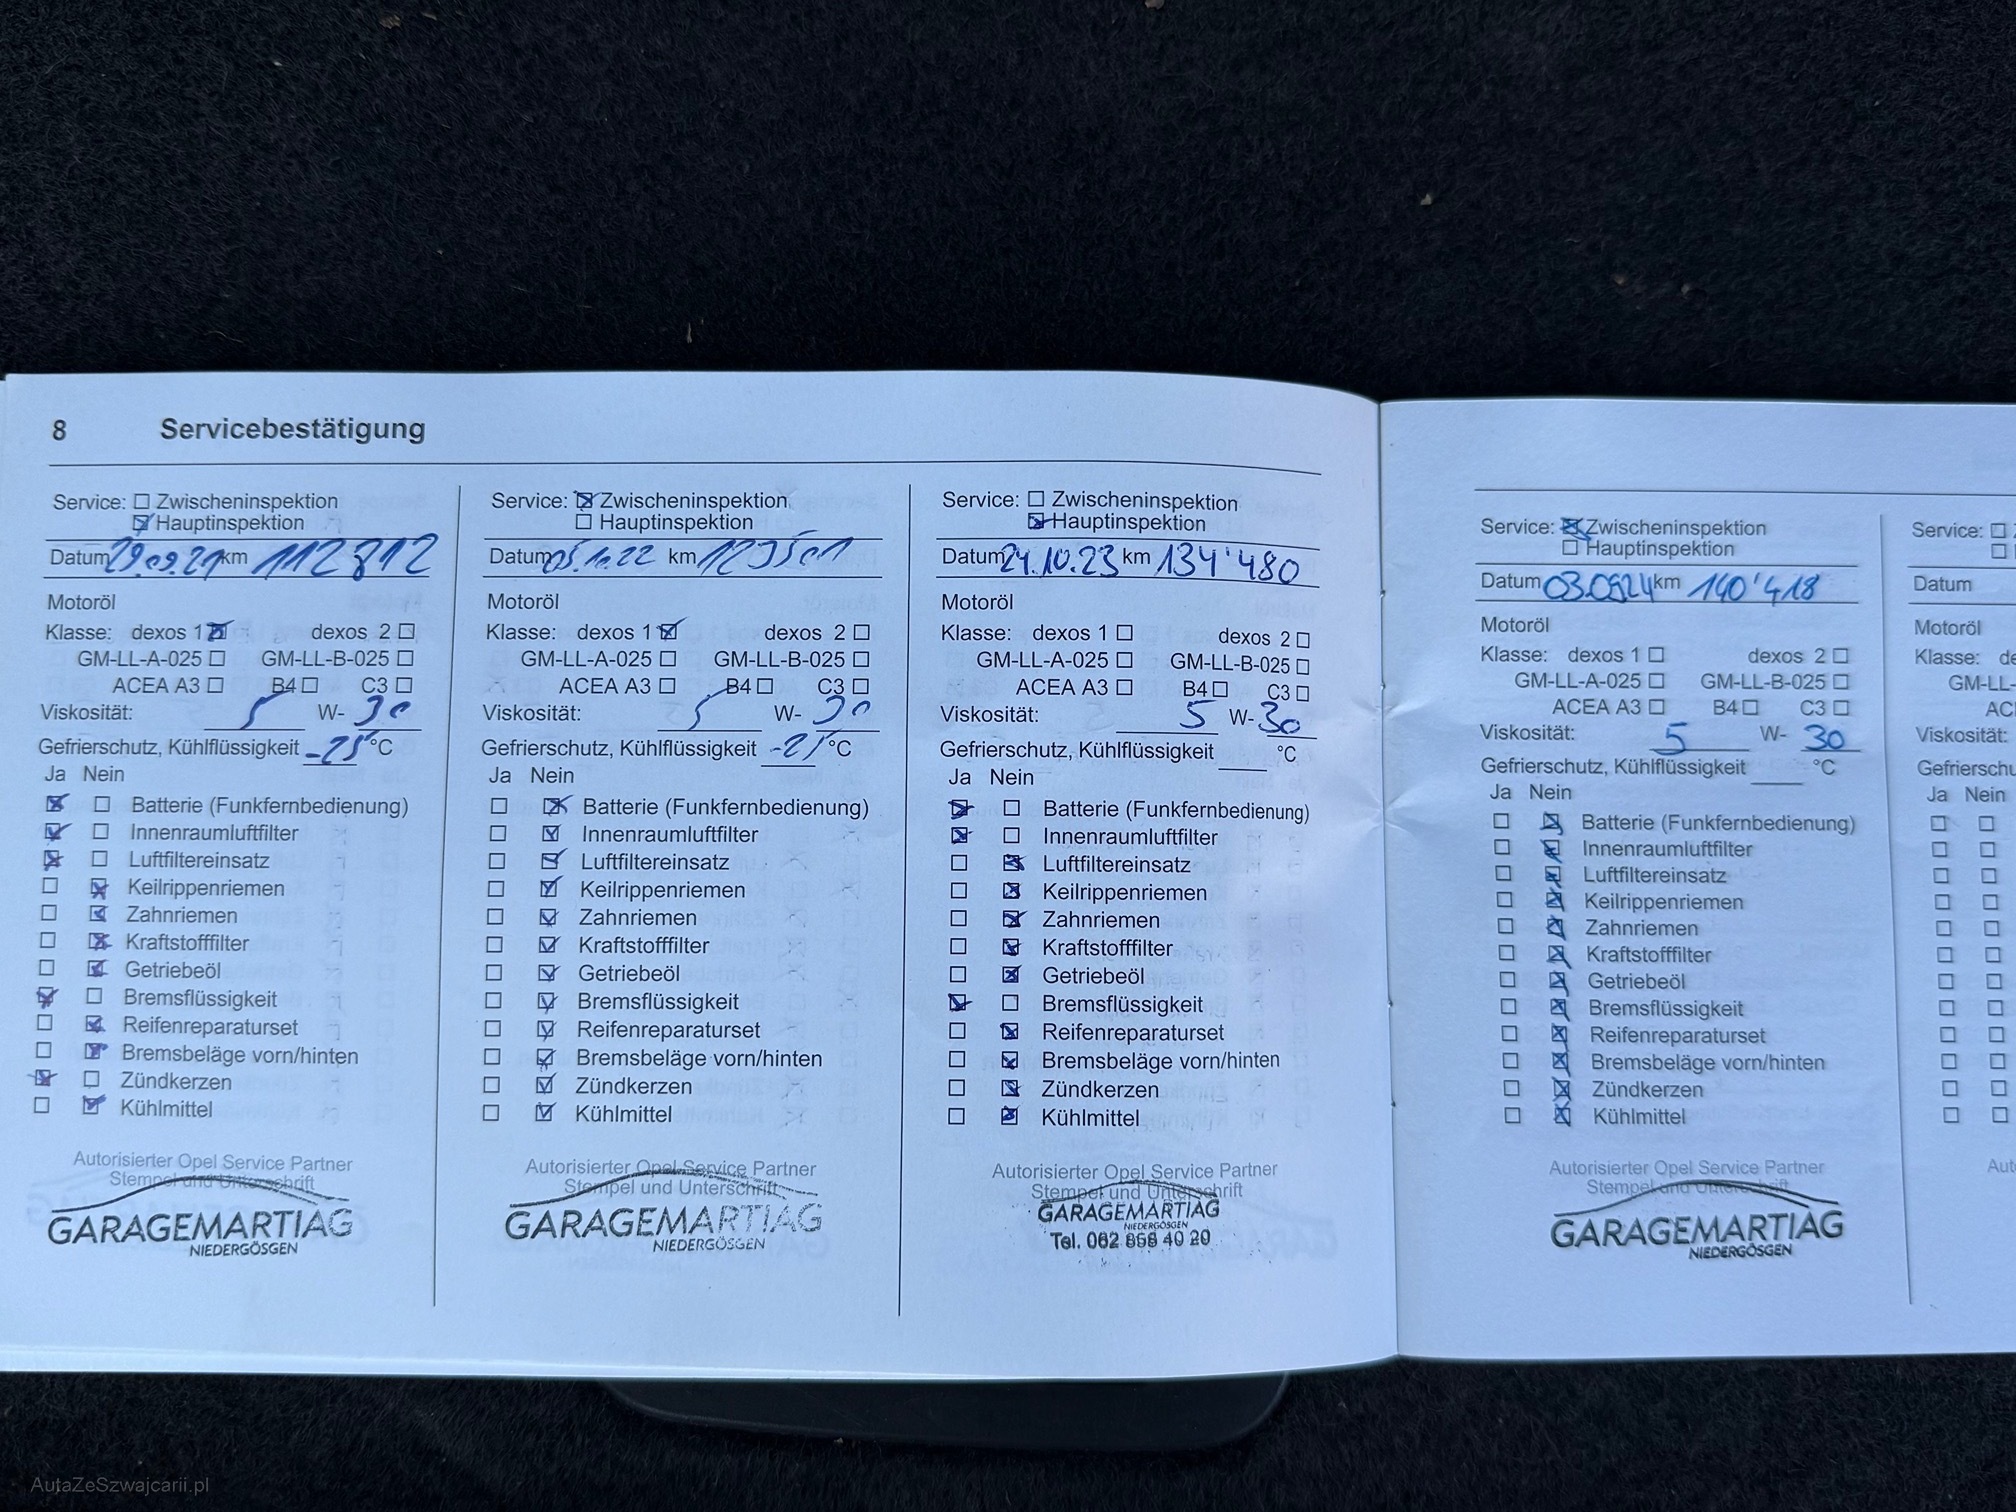 8 Servicebestätigung
Service: ☐ Zwischeninspektion
☒ Hauptinspektion
Datum 29.09.21 km 112 812
Motoröl
Klasse: dexos 1 ☒ dexos 2 ☐
GM-LL-A-025 ☐ GM-LL-B-025 ☐
ACEA A3 ☐ B4 ☐ C3 ☐
Viskosität: 5 W- 30
Gefrierschutz, Kühlflüssigkeit -25 °C
Ja Nein
☒ ☐ Batterie (Funkfernbedienung)
☒ ☐ Innenraumluftfilter
☒ ☐ Luftfiltereinsatz
☐ ☒ Keilrippenriemen
☐ ☒ Zahnriemen
☐ ☒ Kraftstofffilter
☐ ☒ Getriebeöl
☒ ☐ Bremsflüssigkeit
☐ ☒ Reifenreparaturset
☐ ☒ Bremsbeläge vorn/hinten
☒ ☐ Zündkerzen
☐ ☒ Kühlmittel
Autorisierter Opel Service Partner
Stempel und Unterschrift
GARAGEMARTIAG
NIEDERGÖSGEN
Service: ☒ Zwischeninspektion
☐ Hauptinspektion
Datum 05.10.22 km
Motoröl
Klasse: dexos 1 ☒ dexos 2 ☐
GM-LL-A-025 ☐ GM-LL-B-025 ☐
ACEA A3 ☐ B4 ☐ C3 ☐
Viskosität: 5 W- 30
Gefrierschutz, Kühlflüssigkeit -25 °C
Ja Nein
☐ ☒ Batterie (Funkfernbedienung)
☐ ☒ Innenraumluftfilter
☐ ☒ Luftfiltereinsatz
☐ ☒ Keilrippenriemen
☐ ☒ Zahnriemen
☐ ☒ Kraftstofffilter
☐ ☒ Getriebeöl
☐ ☒ Bremsflüssigkeit
☐ ☒ Reifenreparaturset
☐ ☒ Bremsbeläge vorn/hinten
☐ ☒ Zündkerzen
☐ ☒ Kühlmittel
Autorisierter Opel Service Partner
Stempel und Unterschrift
GARAGEMARTIAG
NIEDERGÖSGEN
Service: ☐ Zwischeninspektion
☒ Hauptinspektion
Datum 24.10.23 km 134'480
Motoröl
Klasse: dexos 1 ☐ dexos 2 ☐
GM-LL-A-025 ☐ GM-LL-B-025 ☐
ACEA A3 ☐ B4 ☐ C3 ☐
Viskosität: 5 W- 30
Gefrierschutz, Kühlflüssigkeit ____ °C
Ja Nein
☒ ☐ Batterie (Funkfernbedienung)
☒ ☐ Innenraumluftfilter
☐ ☒ Luftfiltereinsatz
☐ ☒ Keilrippenriemen
☐ ☒ Zahnriemen
☐ ☒ Kraftstofffilter
☐ ☒ Getriebeöl
☒ ☐ Bremsflüssigkeit
☐ ☒ Reifenreparaturset
☐ ☒ Bremsbeläge vorn/hinten
☐ ☒ Zündkerzen
☐ ☒ Kühlmittel
Autorisierter Opel Service Partner
Stempel und Unterschrift
GARAGEMARTIAG
NIEDERGÖSGEN
Tel. 062 858 40 20
Service: ☒ Zwischeninspektion
☐ Hauptinspektion
Datum 03.09.24 km 140'418
Motoröl
Klasse: dexos 1 ☐ dexos 2 ☐
GM-LL-A-025 ☐ GM-LL-B-025 ☐
ACEA A3 ☐ B4 ☐ C3 ☐
Viskosität: 5 W- 30
Gefrierschutz, Kühlflüssigkeit ____ °C
Ja Nein
☐ ☒ Batterie (Funkfernbedienung)
☐ ☒ Innenraumluftfilter
☐ ☒ Luftfiltereinsatz
☐ ☒ Keilrippenriemen
☐ ☒ Zahnriemen
☐ ☒ Kraftstofffilter
☐ ☒ Getriebeöl
☐ ☒ Bremsflüssigkeit
☐ ☒ Reifenreparaturset
☐ ☒ Bremsbeläge vorn/hinten
☐ ☒ Zündkerzen
☐ ☒ Kühlmittel
Autorisierter Opel Service Partner
Stempel und Unterschrift
GARAGEMARTIAG
NIEDERGÖSGEN
Service: ☐
☐
Datum
Motoröl
Klasse: de
GM-LL-
AC
Viskosität:
Gefrierschu
Ja Nein
Aut
AutaZeSzwajcarii.pl